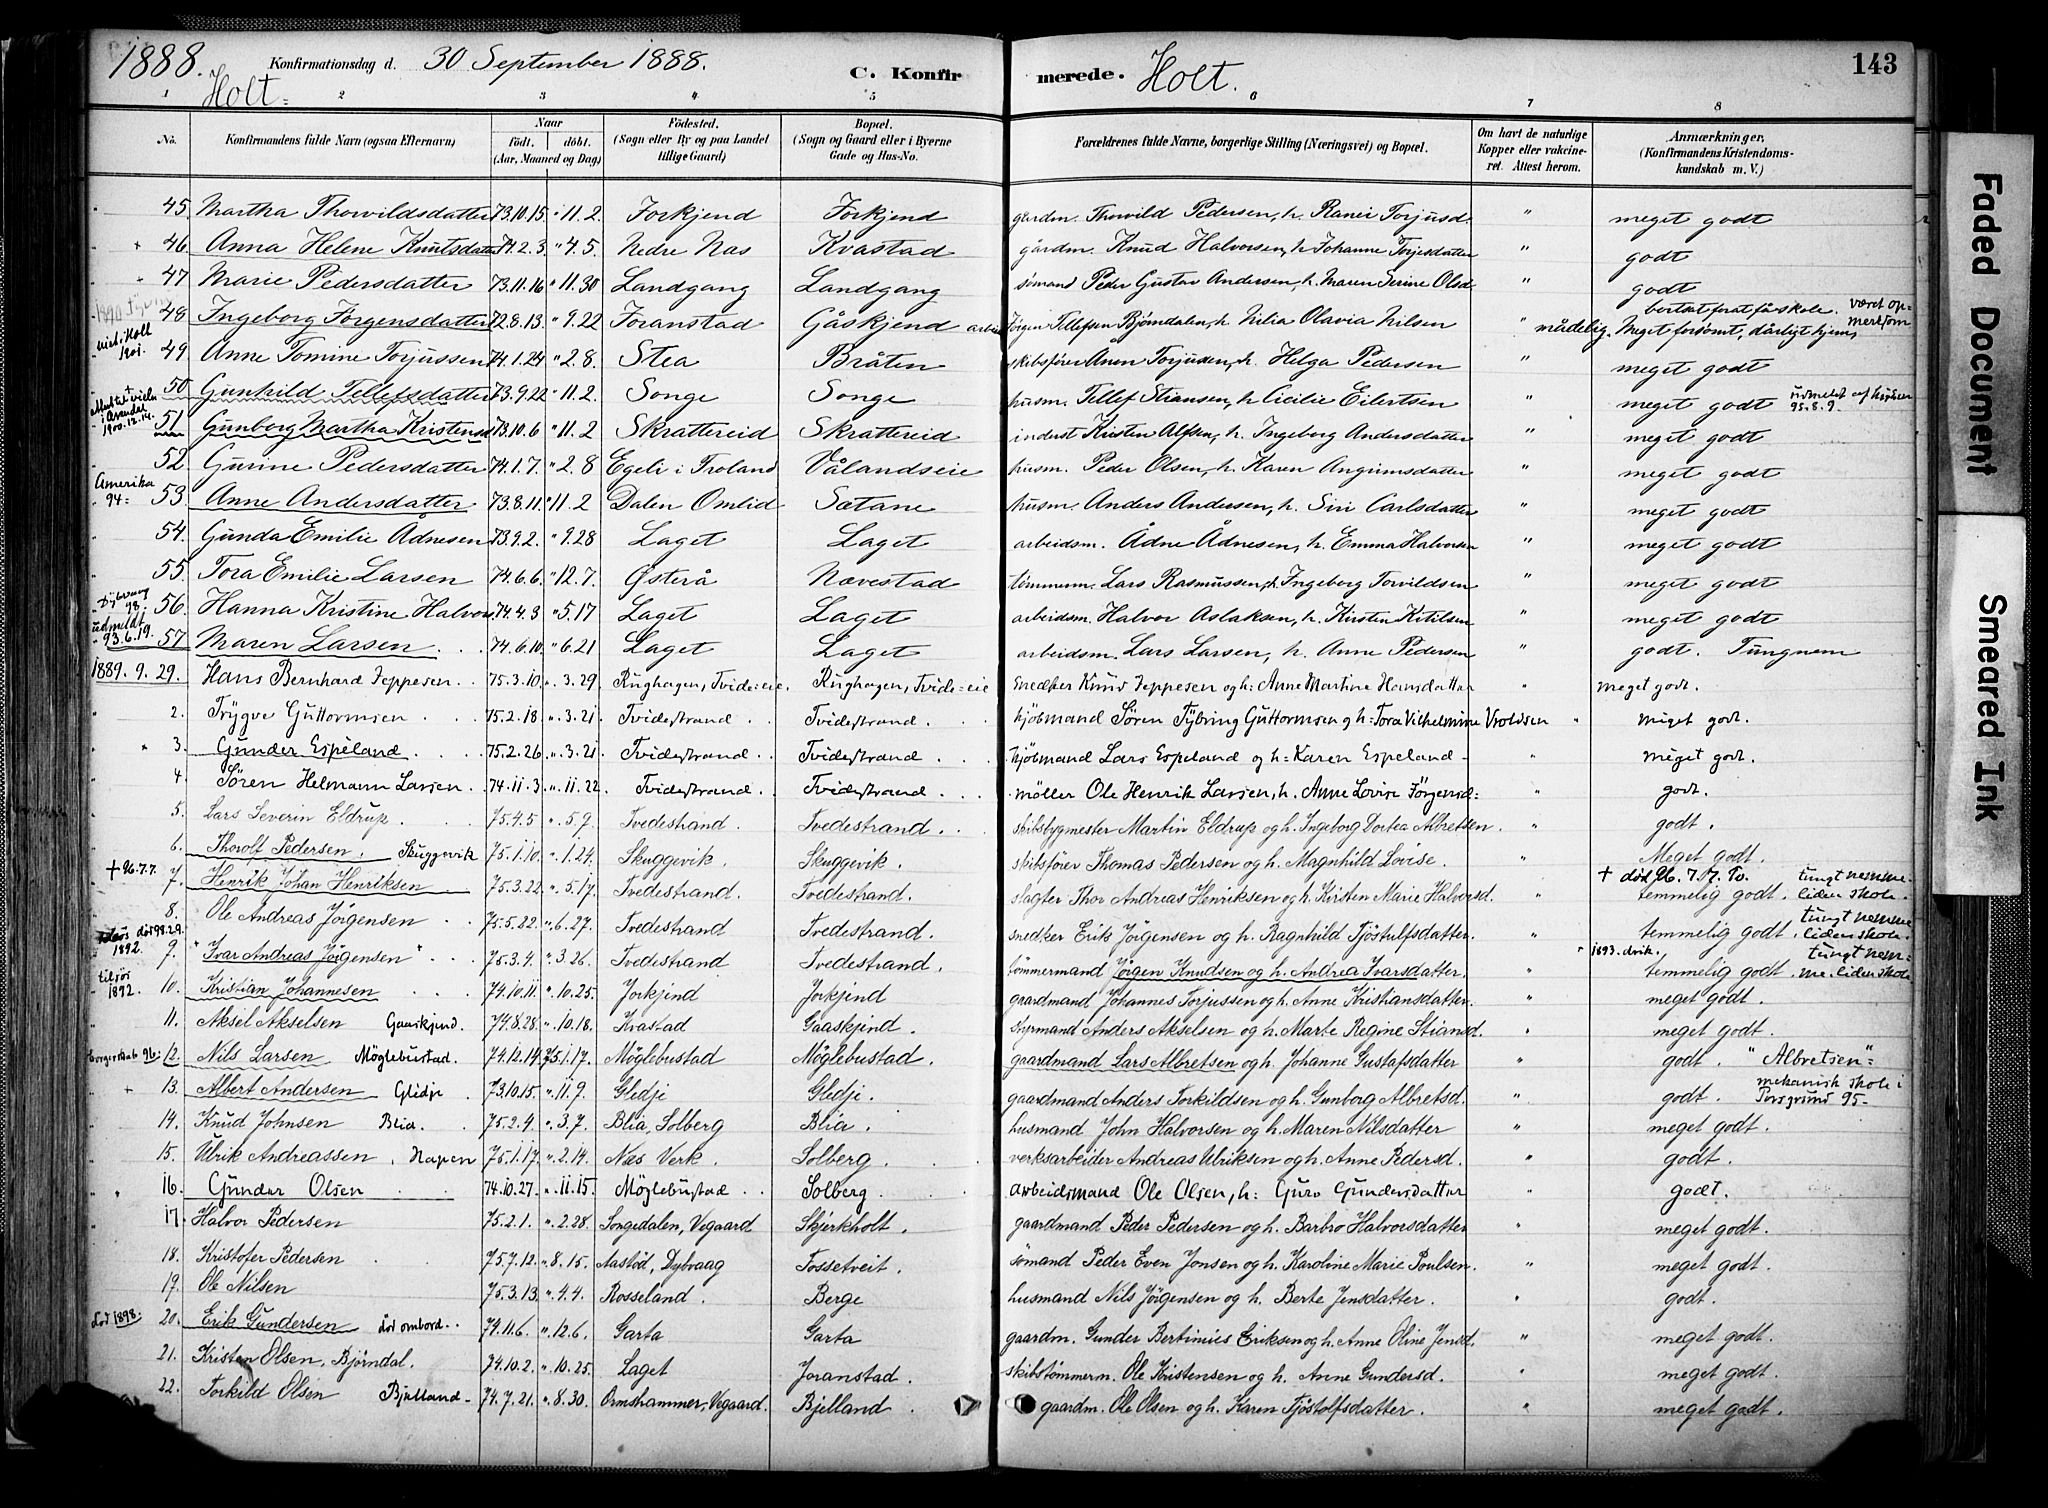 1888. Konfirmationsdag d. 30 September 1888. C. Konfirmerede. Holt. 143
Holt.
1 2 3 4 5 6 7 8
No. Konfirmandens fulde Navn (ogsaa Efternavn) Naar Født. døbt. (Aar, Maaned og Dag) Fødested. (Sogn eller By og paa Landet tillige Gaard) Bopæl. (Sogn og Gaard eller i Byerne Gade og Hus-No. Forældrenes fulde Navne, borgerlige Stilling (Næringsvei) og Bopæl. Om havt de naturlige Kopper eller vakcineret. Attest herom. Anmærkninger, (Konfirmandens Kristendomskundskab m. V.)
45 Martha Thorvildsdatter 73.10.15 " 11.2 Forkjend Forkjend gardm. Thorvild Pedersen, h. Ranei Torjusd. " meget godt
+ 46 Anna Helene Knutsdatter 74.2.3 " 4.5 Nedre Nas Kvastad gårdm. Knud Halvorsen, h. Johanne Torjesdatter " godt
47 Marie Pedersdatter 73.11.16 " 11.30 Landgang Landgang sømand Peder Gustav Andersen, h. Maren Serine Olsd " godt
48 Ingeborg Jørgensdatter 72.8.13 " 9.22 Foranstad Gåskjend arbei Jørgen Tellefsen Bjørndalen, h. Nilia Olavia Nilsen " mådelig. Meget forsømt, dårligt hjem, bortsat fra fåskole. været opmerksom
viet i Holt 1901. 49 Anne Tomine Torjussen 74.1.24 " 2.8 Stea Bråten skibsfører Ånon Torjusen, h. Helga Pedersen " meget godt
+ 50 Gunhild Tellefsdatter 73.9.22 " 11.2 Songe Songe husm. Tellef Stiansen, h. Cicilie Eilertsen " meget godt udmeldt af kirken 95.8.9.
i Arendal 1900.12.14. 51 Gunborg Martha Kristensd 73.10.6 " 11.2 Skrattereid Skrattereid inderst Kristen Alfsen, h. Ingeborg Andersdatter " meget godt
52 Gunne Pedersdatter 74.1.7. " 2.8 Egeli i Froland Vålandseie husm. Peder Olsen, h. Karen Angrimsdatter " meget godt
Amerika 94= 53 Anne Andersdatter 73.8.11. " 11.2 Dalen Omlid Sætane husm. Anders Andersen, h. Siri Carlsdatter " meget godt
54. Gunda Emilie Ådnesen 73.9.2. " 9.28 Laget Laget arbeidsm. Ådne Ådnesen, h. Emma Halvorsen " meget godt
55. Tora Emilie Larsen 74.6.6. " 12.7. Østerå Nævestad tømmerm. Lars Rasmussen, h. Ingeborg Torvildsen " meget godt
Dybvaag 98. 56. Hanna Kristine Halvors 74.4.3 " 5.17 Laget Laget arbeidsm. Halvor Aslaksen, h. Kirsten Kitilsen " meget godt
udmeldt 93.6.19. 57 Maren Larsen 74.6.10. " 6.21 Laget Laget arbeidsm. Lars Larsen, h. Anne Pedersen " godt. Tungnem
1889. 9. 29. Hans Bernhard Jeppesen. 75.3.10. ". 3.29 Rughagen, Tvide=eie. Rughagen, Tvide=eie snedker Knud Jeppesen og h: Anne Martine Hansdatter " meget godt.
2. Trygve Guttormsen 75.2.18. ". 3.21. Tvidestrand Tvidestrand. kjøbmand Søren Tybring Guttormsen og h: Tora Vilhelmine Vroldsen " meget godt.
3. Gunder Espeland. 75.2.26. ". 3.21 Tvidestrand Tvidestrand. kjøbmand Lars Espeland og h: Karen Espeland " meget godt.
4. Søren Helmann Larsen. 74.11.3. ". 11.22 Tvidestrand. Tvidestrand. møller Ole Henrik Larsen, h. Anne Lovise Jørgensd= " godt.
5. Lars Severin Eldrup. 75.4.5 ". 5.9. Tvedestrand. Tvedestrand. skibsbygmester Martin Eldrup og h. Ingeborg Dortea Albretsen. " godt.
6. Thorolf Pedersen. Skuggevik 75.1.10. ". 1.24. Skuggevik. Skuggevik. skibsfører Thomas Pedersen og h. Magnhild Lovise. " Meget godt.
+ 96.7.7. 7. Henrik Johan Henriksen 75.3.22. ". 5.17. Tvedestrand. Tvedestrand. slagter Thor Andreas Henriksen og h. Kirsten Marie Halvorsd. " + død 96.7.7. temmelig godt. tungt nemme liden skole.
8. Ole Andreas Jørgensen 75.5.22. ". 6.27. Tvedestrand Tvedestrand. snedker Erik Jørgensen og h. Ragnhild Tjøstulfsdatter. " temmelig godt. tungt nemme liden skole.
død 98.2.9. 1892. 9. "Ivar Andreas Jørgensen" 75.3.4. ". 3.26. Tvedestrand Tvedestrand. tømmermand Jørgen Knudsen og h. Andrea Ivarsdatter. " 1893. drik. temmelig godt. tungt nem=me. liden skole
tilsjøs 1892. 10. Kristian Johannesen 74.10.11. ". 10.25. Jorkjend Jorkjend gaardmand Johannes Torjussen og h. Anne Kristiansdatter. " meget godt.
11. Aksel Akselsen Gaaskjend. 74.8.28. ". 10.18. Kvastad Gaaskjend. styrmand Anders Akselsen og h. Marte Regine Stiansd. " meget godt.
Borgerskab 96: 12. Nils Larsen Møglebustad. 74.12.14. 75.1.17. Møglebustad Møglebustad. gaardmand Lars Albretsen og h. Johanne Gustafsdatter " godt. "Albretsen"=
+ 13. Albert Andersen Glidje 73.10.15. ". 11.9. Glidje Glidje. gaardmand Anders Torkildsen og h. Gunborg Albretsd. " godt. mekanisk skole i Porsgrund 95-
14. Knud Johnsen Blia. 75.2.4. ". 3.7. Blia, Solberg Blia. husmand John Halvorsen og h. Maren Nilsdatter " meget godt.
15. Ulrik Andreassen, Hapen 75.1.17. ". 2.14. Næs Verk. Solberg. verksarbeider Andreas Ulriksen og h. Anne Pedersd. " godt.
16. Gunder Olsen 74.10.27. ". 11.15. Møglebustad. Solberg. arbeidsmand Ole Olsen, h: Guro Gundersdatter " godt.
17. Halvor Pedersen 75.2.1. ". 2.28. Songedalen, Vegaard Skjerkholt. gaardmand Peder Pedersen og h. Barbro Halvorsdatter " meget godt.
18. Kristofer Pedersen 75.7.12. ". 8.15. Aastød, Dybvaag Fossetveit. sømand Peder Even Jonsen og h. Karoline Marie Poulsen. " meget godt.
19. Ole Nilsen 75.3.13. ". 4.4. Rosseland. Berge husmand Nils Jørgensen og h. Berte Jensdatter. " godt.
død 1898. 20. Erik Gundersen død ombord. 74.11.6. ". 12.6. Garta Garta gaardm. Gunder Bertinius Eriksen og h. Anne Oline Jensd. " meget godt.
21. Kristen Olsen, Bjørndal. 74.10.2. ". 10.25. Laget Joranstad. skibstømmerm. Ole Kristensen og h. Anne Gundersd. " meget godt.
22. Torkild Olsen Bjelland- 74.7.21. ". 8.30. Ormshammer, Vegaard. Bjelland gaardm. Ole Olsen og h. Karen Tjøstolfsdatter. " meget godt.
Faded Document
Smeared Ink